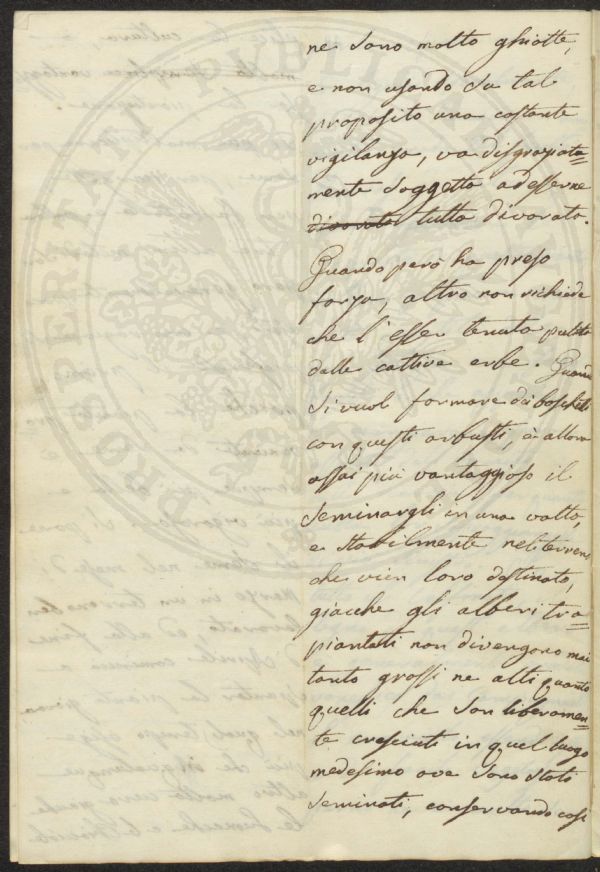 ne sono molto ghiotte,
e non usando su tal
proposito una costante
vigilanza, va disgraziata=
mente soggetto ad esserne
divorato tutto divorato.
Quando però ha preso
forza, altro non richiede
che l'esser tenuto pulito
dalle cattive erbe. Quando
si vuol formare dei boschetti
con questi arbusti, è allora
assai più vantaggioso il
seminargli in una volta,
e stabilmente nel terreno
che vien loro destinato,
giacche gli alberi tra=
piantati non divengono mai
tanto grossi ne alti quanto
quelli che son liberamen=
te cresciuti in quel luogo
medesimo ove sono stati
seminati, conservando così